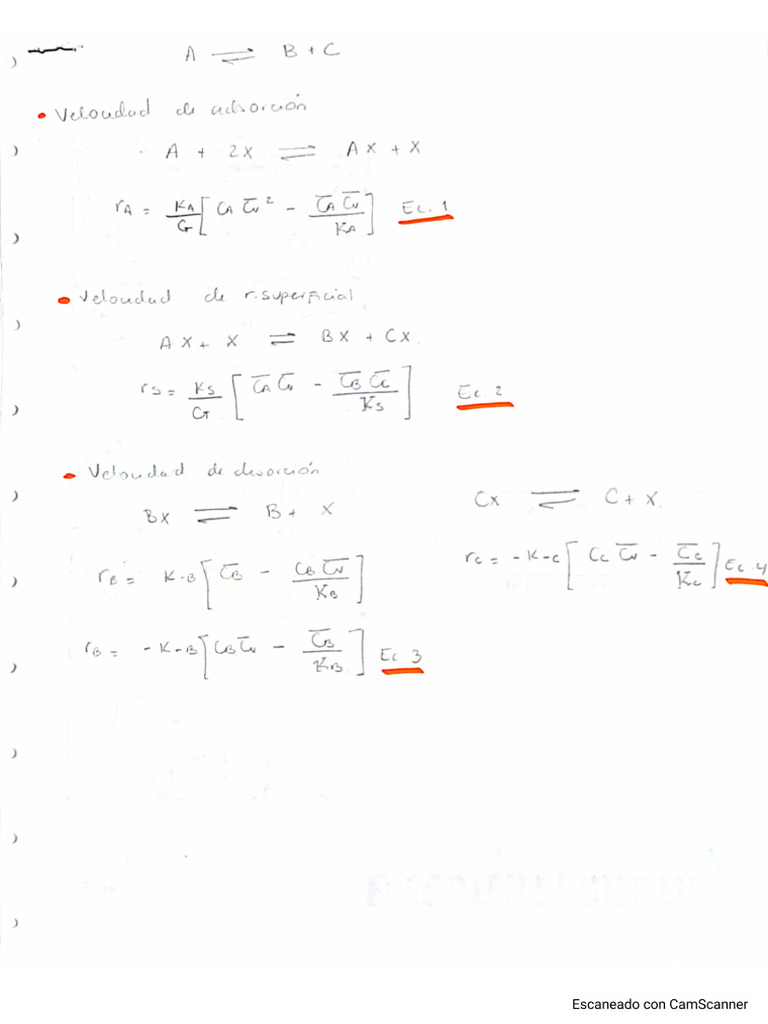 A ⇌ B + C
• Velocidad de adsorción
A + 2X ⇌ AX + X
rA = KA/CT [ CA C̅v² - C̅A C̅v / KA ] Ec. 1
• Velocidad de r. superficial
AX + X ⇌ BX + CX
rS = KS/CT [ C̅A C̅v - C̅B C̅C / KS ] Ec 2
• Velocidad de desorción
BX ⇌ B + X
CX ⇌ C + X.
rB = K-B [ C̅B - CB C̅v / KB ]
rC = -K-C [ CC C̅v - C̅C / KC ] Ec. 4
rB = -K-B [ CB C̅v - C̅B / KB ] Ec 3
Escaneado con CamScanner